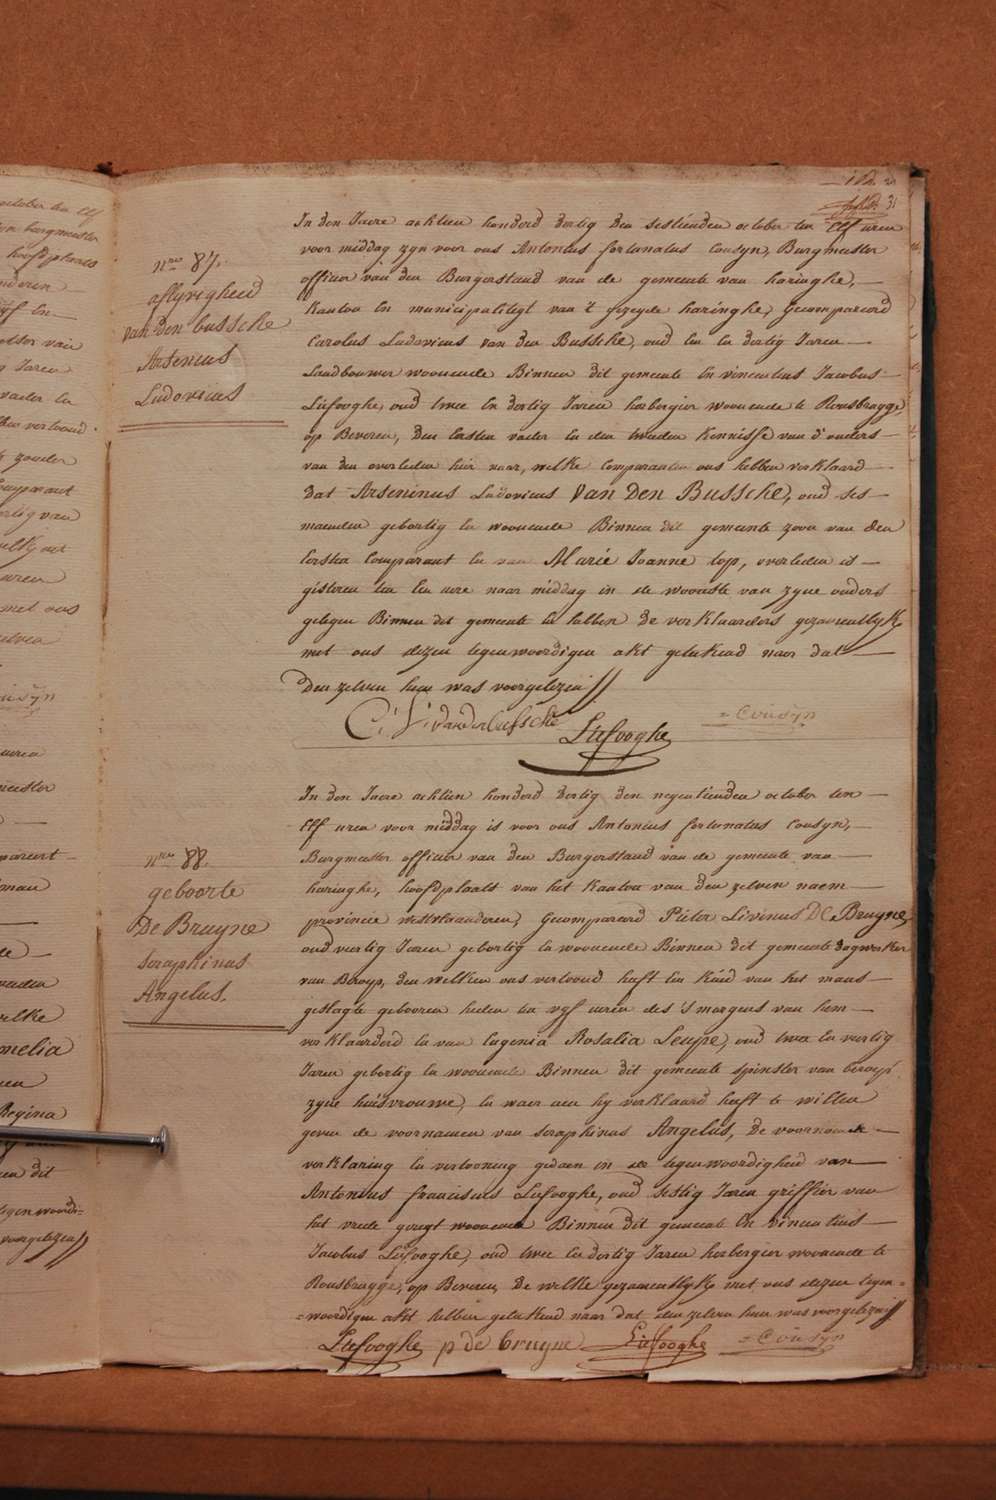 31
In den Jaere achtien honderd dertig den sestienden october ten elf uren
voor middag zyn voor ons Antonius fortunatus Cousyn, Burgmeester
officier van den Burgerstand van de gemeente van haringhe,
Kanton en municipaliteyt van 't gezeyde haringhe, Gecompareerd
Carolus Ludovicus van den Bussche, oud en dertig Jaren
Landbouwer woonende Binnen dit gemeente en vincentius Jacobus
Liefooghe, oud twee en dertig Jaren herbergier woonende te Rousbrugge,
op Beveren, den eersten vader en den tweeden Kennisse van d'ouders
van den overleden hier naer, welke comparanten ons hebben verklaard
dat Arseninus Ludovicus Van Den Bussche, oud ses
maenden geboortig en woonende Binnen dit gemeente zoon van den
eersten Comparant en van Marie Joanne top, overleden is
gisteren ten een uere naer middag in de woonste van zyne ouders
gelegen Binnen dit gemeente en hebben de verklaerders gezaementlyk
met ons dezen tegenwoordigen akt geteekend naer dat
den zelven hun was voorgelezen //
C: L: vandenbussche
Liefooghe
= Cousyn
nro 87.
aflyvigheid
van den bussche
Arsenius
Ludovicus
In den Jaere achtien honderd dertig den negentienden october ten
elf uren voor middag is voor ons Antonius fortunatus Cousyn,
Burgmeester officier van den Burgerstand van de gemeente van
haringhe, hoofdplaets van het Kanton van den zelven naem
provincie westvlaanderen, Gecompareerd Pieter Livinus De Bruyne,
oud veertig Jaren geboortig en woonende Binnen dit gemeente dagwerker
van Beroep, den welken ons vertoond heeft een kind van het mans
geslagte gebooren heden ten vyf uren des 's morgens van hem
verklaarderd en van Eugenia Rosalia Leupe, oud twee en veertig
Jaren geboortig en woonende Binnen dit gemeente spinster van beroep
zyne huisvrouwe, en waer aen hy verklaard heeft te willen
geven de voornamen van seraphinus Angelus, De voornoemde
verklaring en vertooning gedaen in de tegenwoordigheid van
Antonius franciscus Liefooghe, oud sestig Jaren griffier van
het vrede geregt woonende Binnen dit gemeente en vincentius
Jacobus Liefooghe, oud twee en dertig Jaren herbergier woonende te
Rousbrugge, op Beveren, De welke gezamentlyk met ons dezen tegen=
=woordigen akt hebben geteekend naer dat den zelven hun was voorgelezen //
Liefooghe p de bruyne Liefooghe = Cousyn
nro 88.
geboorte
De Bruyne
seraphinus
Angelus.